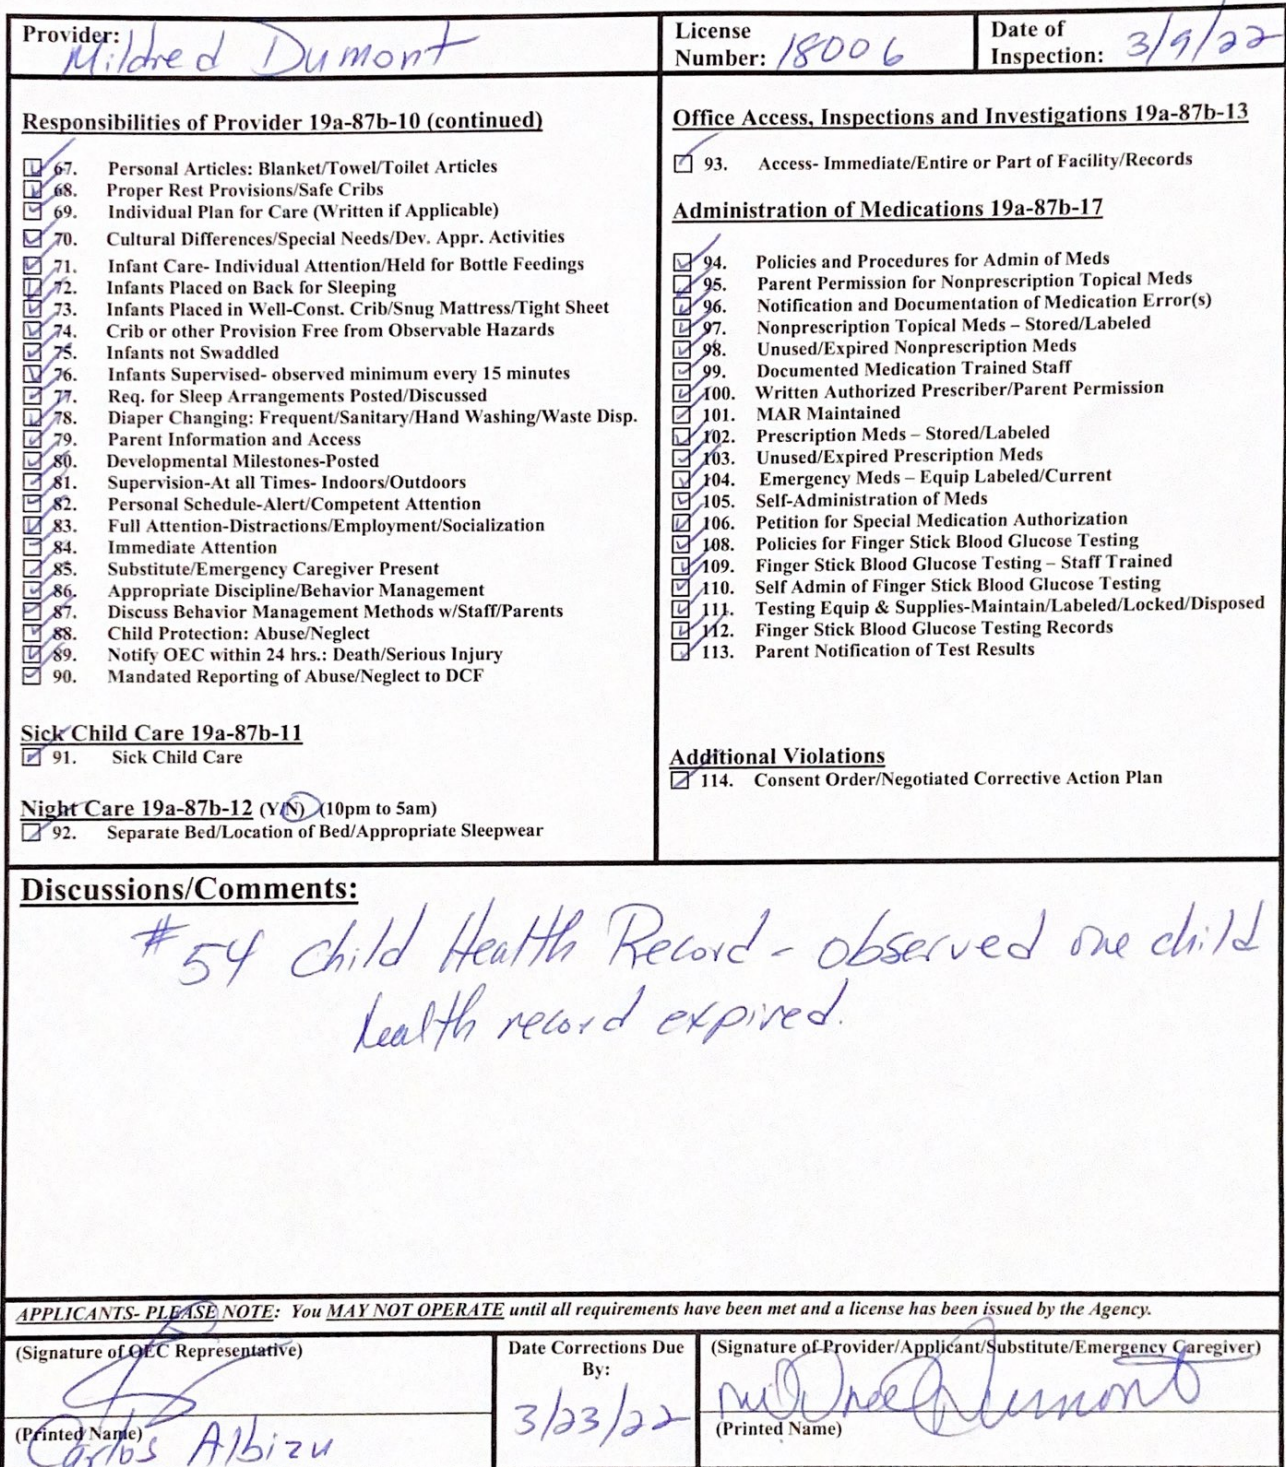 Provider: Mildred Dumont
License Number: 18006
Date of Inspection: 3/9/22
Responsibilities of Provider 19a-87b-10 (continued)
67. Personal Articles: Blanket/Towel/Toilet Articles
68. Proper Rest Provisions/Safe Cribs
69. Individual Plan for Care (Written if Applicable)
70. Cultural Differences/Special Needs/Dev. Appr. Activities
71. Infant Care- Individual Attention/Held for Bottle Feedings
72. Infants Placed on Back for Sleeping
73. Infants Placed in Well-Const. Crib/Snug Mattress/Tight Sheet
74. Crib or other Provision Free from Observable Hazards
75. Infants not Swaddled
76. Infants Supervised- observed minimum every 15 minutes
77. Req. for Sleep Arrangements Posted/Discussed
78. Diaper Changing: Frequent/Sanitary/Hand Washing/Waste Disp.
79. Parent Information and Access
80. Developmental Milestones-Posted
81. Supervision-At all Times- Indoors/Outdoors
82. Personal Schedule-Alert/Competent Attention
83. Full Attention-Distractions/Employment/Socialization
84. Immediate Attention
85. Substitute/Emergency Caregiver Present
86. Appropriate Discipline/Behavior Management
87. Discuss Behavior Management Methods w/Staff/Parents
88. Child Protection: Abuse/Neglect
89. Notify OEC within 24 hrs.: Death/Serious Injury
90. Mandated Reporting of Abuse/Neglect to DCF
Sick Child Care 19a-87b-11
91. Sick Child Care
Night Care 19a-87b-12 (Y/N) (10pm to 5am)
92. Separate Bed/Location of Bed/Appropriate Sleepwear
Office Access, Inspections and Investigations 19a-87b-13
93. Access- Immediate/Entire or Part of Facility/Records
Administration of Medications 19a-87b-17
94. Policies and Procedures for Admin of Meds
95. Parent Permission for Nonprescription Topical Meds
96. Notification and Documentation of Medication Error(s)
97. Nonprescription Topical Meds – Stored/Labeled
98. Unused/Expired Nonprescription Meds
99. Documented Medication Trained Staff
100. Written Authorized Prescriber/Parent Permission
101. MAR Maintained
102. Prescription Meds – Stored/Labeled
103. Unused/Expired Prescription Meds
104. Emergency Meds – Equip Labeled/Current
105. Self-Administration of Meds
106. Petition for Special Medication Authorization
108. Policies for Finger Stick Blood Glucose Testing
109. Finger Stick Blood Glucose Testing – Staff Trained
110. Self Admin of Finger Stick Blood Glucose Testing
111. Testing Equip & Supplies-Maintain/Labeled/Locked/Disposed
112. Finger Stick Blood Glucose Testing Records
113. Parent Notification of Test Results
Additional Violations
114. Consent Order/Negotiated Corrective Action Plan
Discussions/Comments:
#54 Child Health Record - observed one child
health record expired.
APPLICANTS- PLEASE NOTE: You MAY NOT OPERATE until all requirements have been met and a license has been issued by the Agency.
(Signature of OEC Representative)
(Printed Name)
Carlos Albizu
Date Corrections Due
By:
3/23/22
(Signature of Provider/Applicant/Substitute/Emergency Caregiver)
Mildred Dumont
(Printed Name)